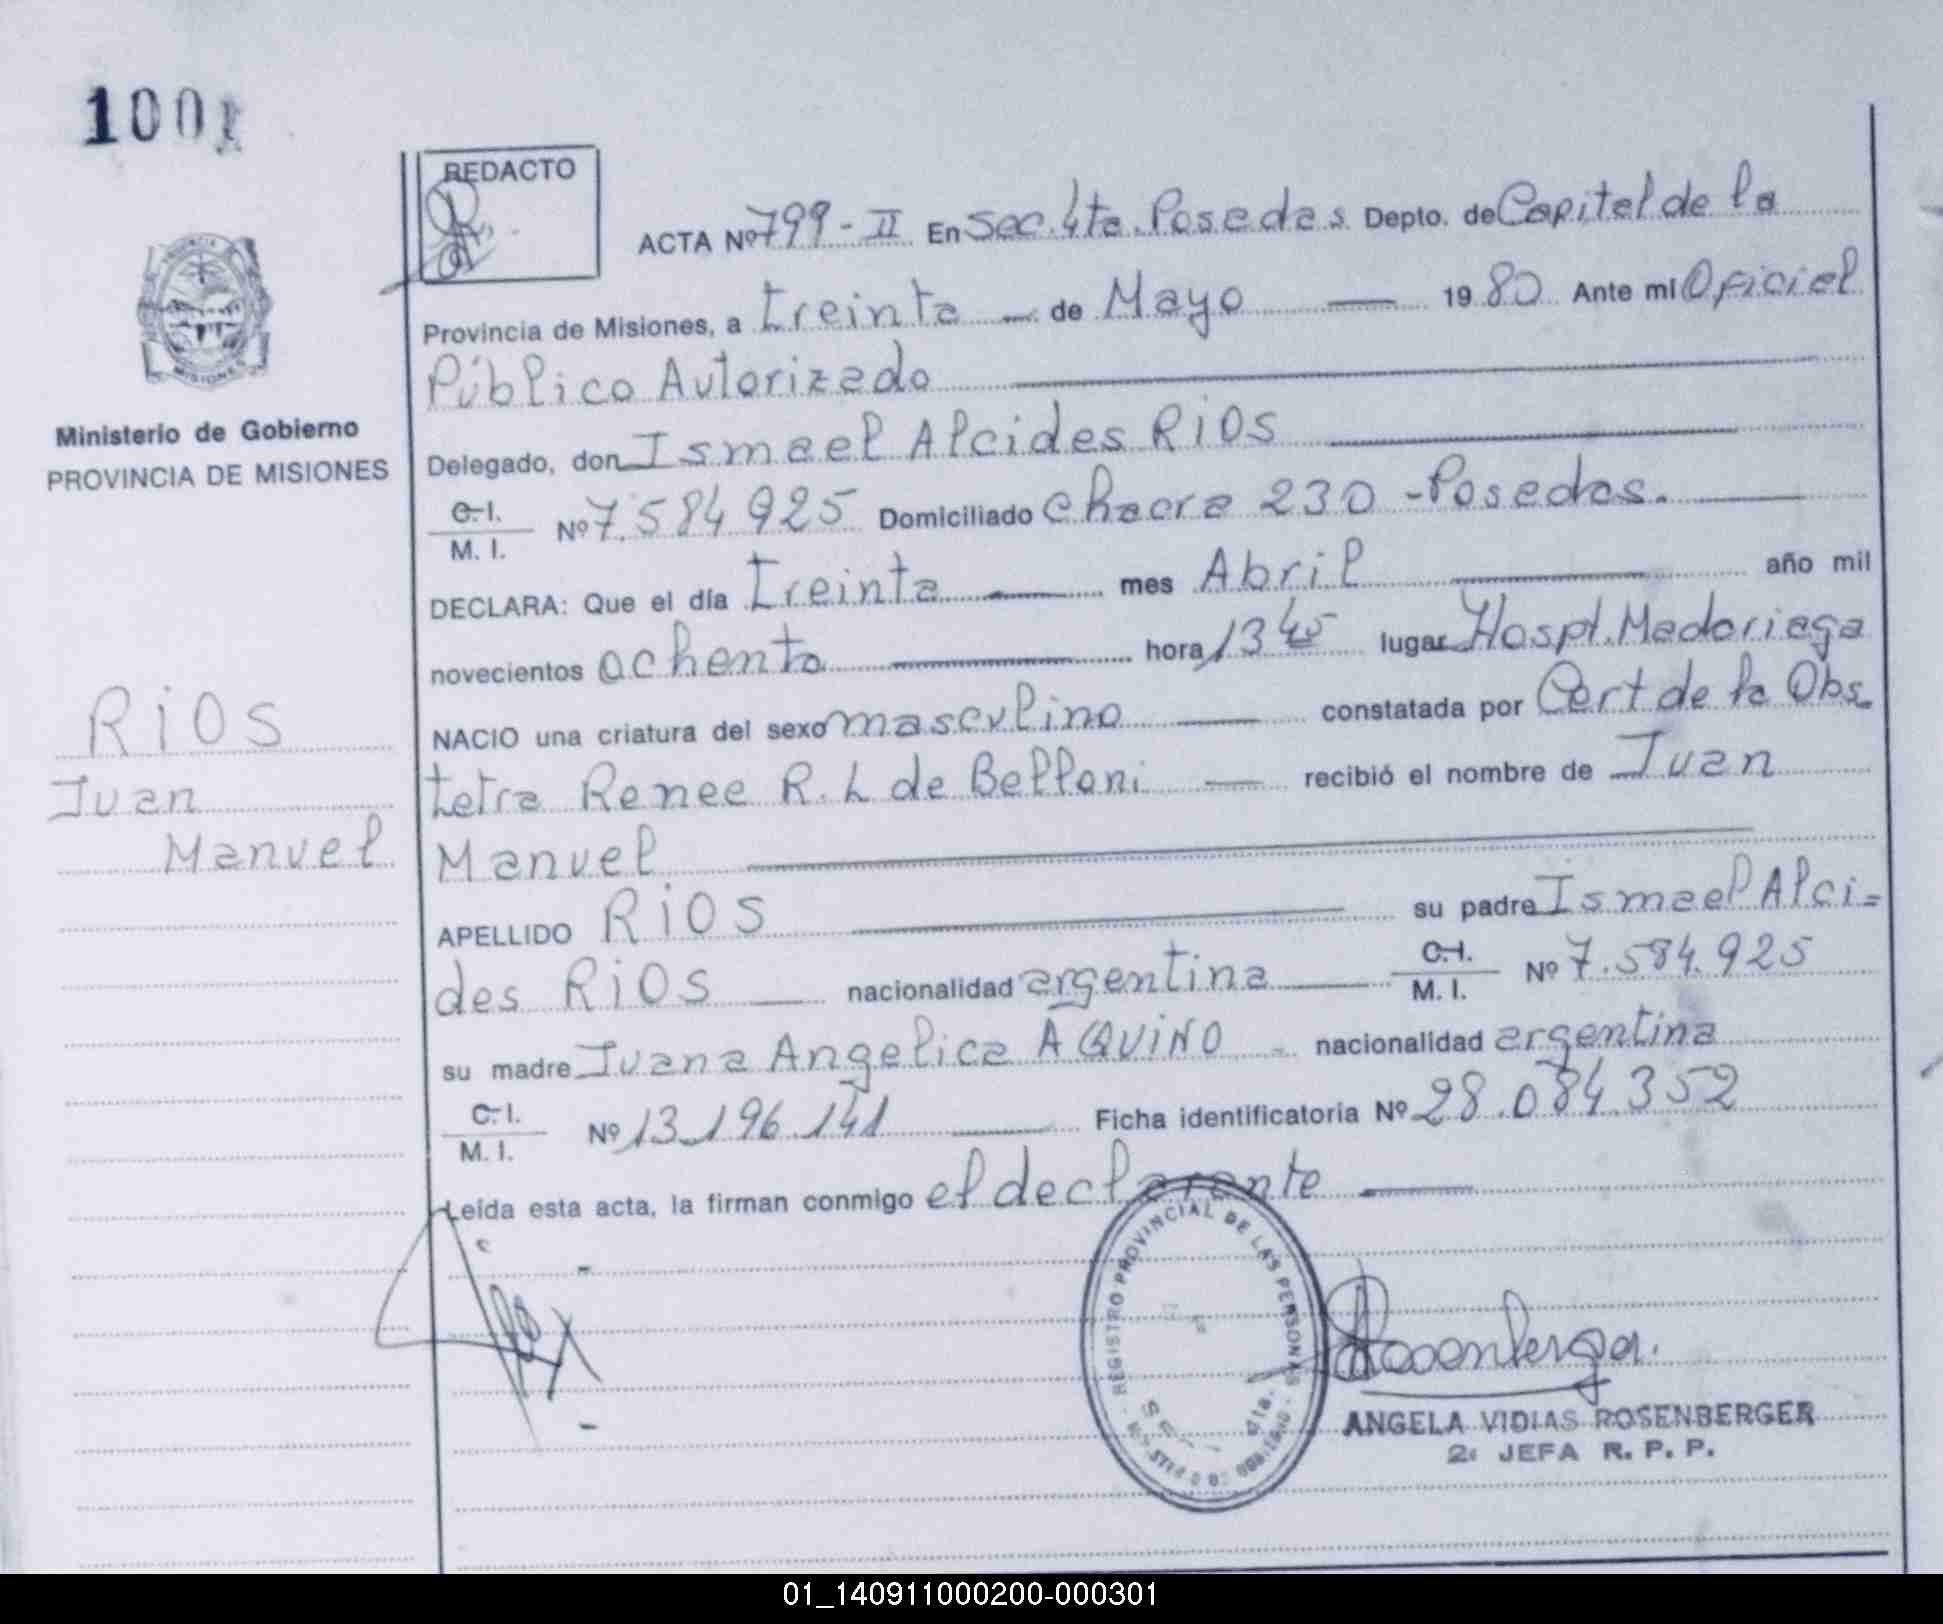 1001
REDACTO
ACTA Nº 799 - II En Sec. 4ta. Posadas Depto. de Capital de la
Provincia de Misiones, a treinta — de Mayo — 1980 Ante mi Oficial
Público Autorizado
Delegado, don Ismael Alcides RiOS
C.I. / M. I. Nº 7.584.925 Domiciliado chacra 230 - Posadas.
DECLARA: Que el día treinta — mes Abril — año mil
novecientos ochenta — hora 13 45 lugar Hospt. Madariaga
NACIO una criatura del sexo masculino — constatada por Cert de la Obs.
tetra Renee R. L de Belloni — recibió el nombre de Juan
Manuel
APELLIDO RiOS — su padre Ismael Alci=
des RiOS — nacionalidad argentina — C.I. / M. I. Nº 7.584.925
su madre Juana Angelica AQUiNO - nacionalidad argentina
C.I. / M. I. Nº 13.196.141 — Ficha identificatoria Nº 28.084.352
Leída esta acta, la firman conmigo el declarante —
MISIONES
Ministerio de Gobierno
PROVINCIA DE MISIONES
RiOS
Juan
Manuel
REGISTRO PROVINCIAL DE LAS PERSONAS
4ta.
Rosenberger
ANGELA VIDIAS ROSENBERGER
2ª JEFA R. P. P.
01_140911000200-000301